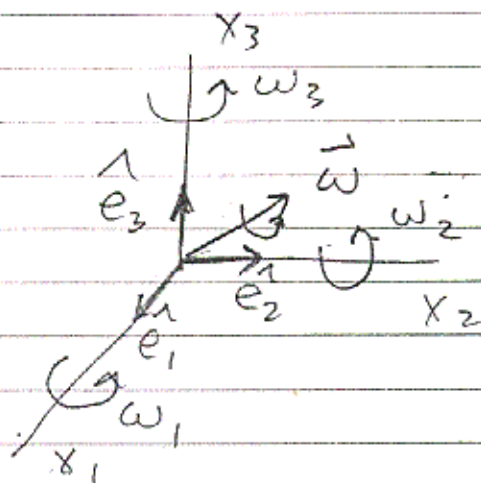 x₃
ω₃
ê₃
ω⃗
ω₂
ê₂
x₂
ê₁
ω₁
x₁